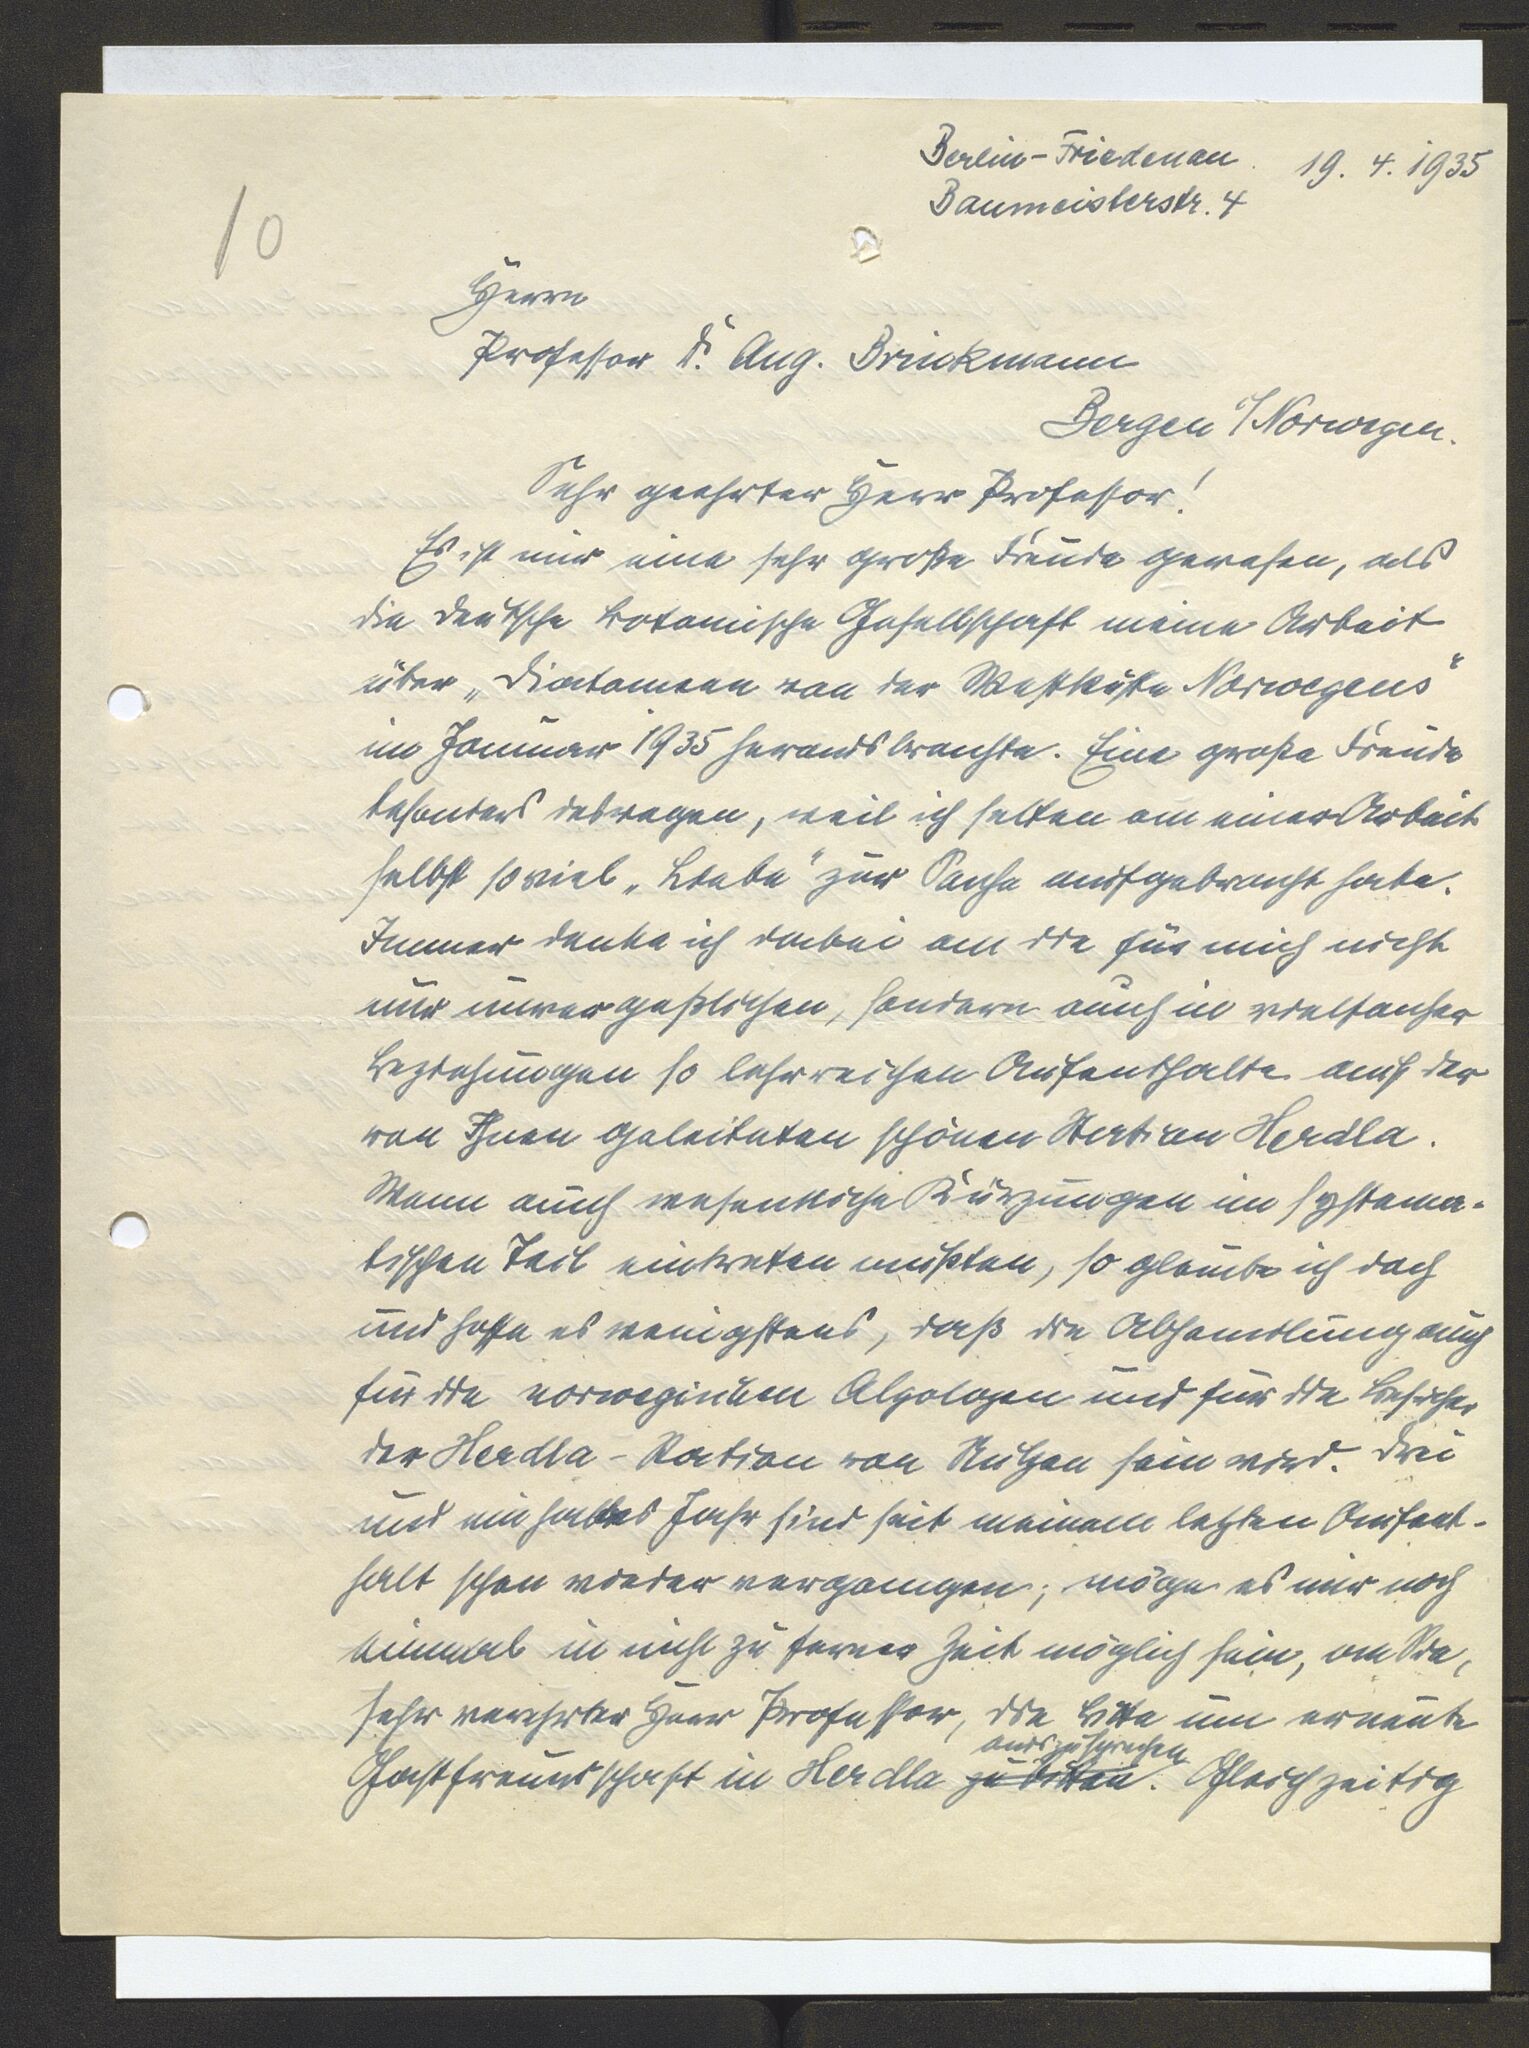 Berlin-Friedenau. 19. 4. 1935
Baumeisterstr. 4
10
Herrn
Professor Dr. Aug. Brinkmann
Bergen i/Norwegen.
Sehr geehrter Herr Professor!
Es ist mir eine sehr große Freude gewesen, als
die Deutsche Botanische Gesellschaft meine Arbeit
über „Diatomeen von der Westküste Norwegens“
im Januar 1935 herausbrachte. Eine große Freude
besonders deswegen, weil ich selten an einer Arbeit
selbst so viel „Liebe“ zur Sache aufgebracht habe.
Immer denke ich dabei an die für mich nicht
nur unvergeßlichen, sondern auch in vielfacher
Beziehungen so lehrreichen Aufenthalte auf der
von Ihnen geleiteten schönen Station Herdla.
Wenn auch wesentliche Kürzungen im systema-
tischen Teil eintreten mußten, so glaube ich doch
und hoffe es wenigstens, daß die Abhandlung auch
für die norwegischen Algologen und für die Besucher
der Herdla-Station von Nutzen sein wird. Drei
und ein halbes Jahr sind seit meinem letzten Aufent-
halt schon wieder vergangen; möge es mir noch
einmal in nicht zu ferner Zeit möglich sein, an Sie,
sehr verehrter Herr Professor, die Bitte um erneute
auszusprechen
Gastfreundschaft in Herdla zu bitten. Gleichzeitig